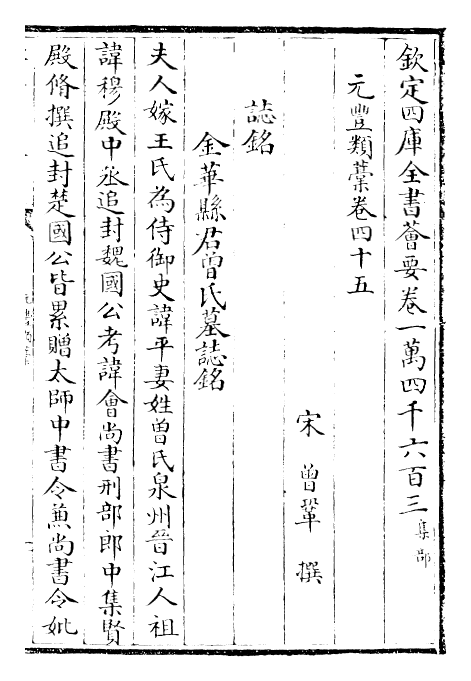 欽定四庫全書薈要卷一萬四千六百三 集部
元豐類藁卷四十五
宋 曾鞏 撰
誌銘
金華縣君曾氏墓誌銘
夫人嫁王氏為侍御史諱平妻姓曾氏泉州晉江人祖
諱穆殿中丞追封魏國公考諱會尚書刑部郎中集賢
殿脩撰追封楚國公皆累贈太師中書令兼尚書令妣